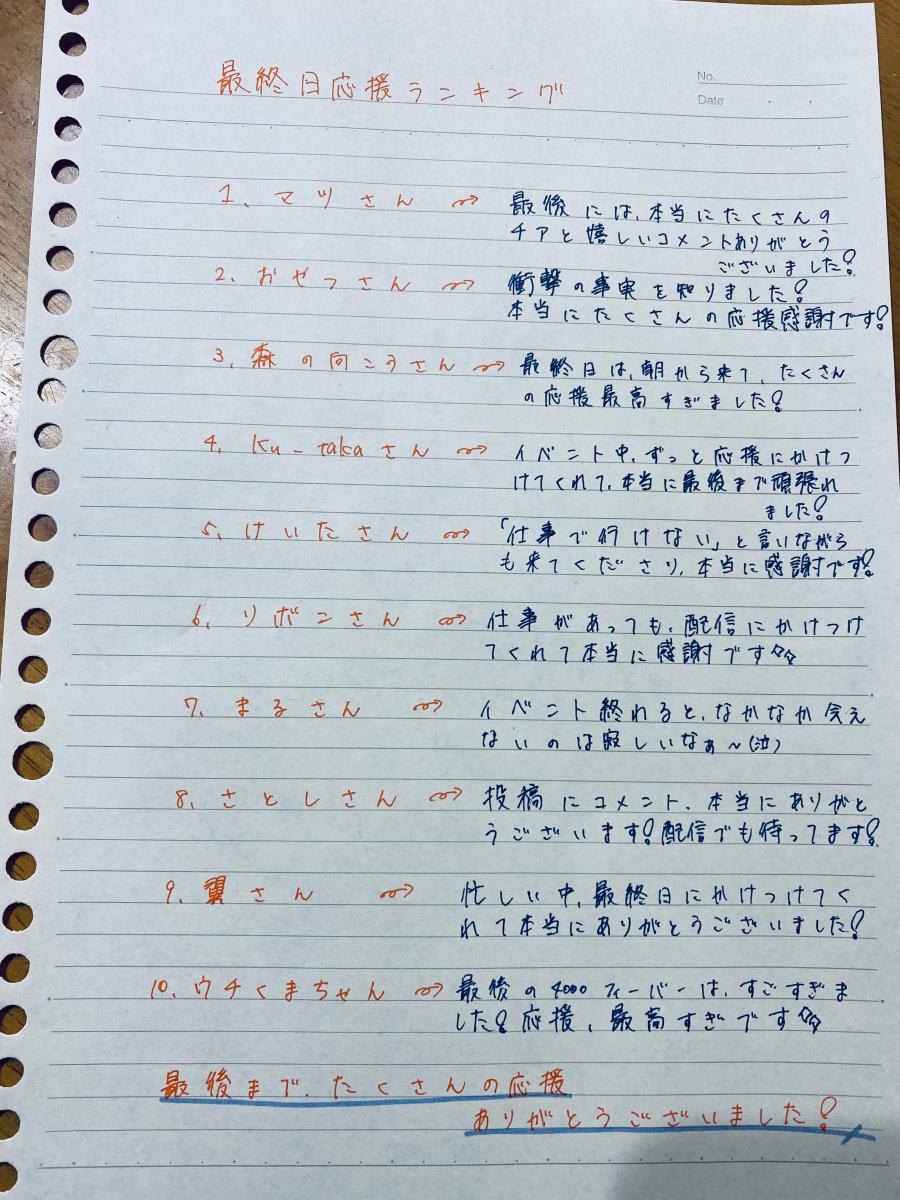 最終日応援ランキング
No.
Date
1、マツさん → 最後には、本当にたくさんの
チアと嬉しいコメントありがとう
ございました!
2、おせつさん → 衝撃の事実を知りました!
本当にたくさんの応援感謝です!
3、森の向こうさん → 最終日は、朝から来て、たくさん
の応援最高すぎました!
4、Ku-takaさん → イベント中、ずっと応援にかけつ
けてくれて、本当に最後まで頑張れ
ました!
5、けいたさん → 「仕事で行けない」と言いながら
も来てくださり、本当に感謝です!
6、リボンさん → 仕事があっても、配信にかけつけ
てくれて本当に感謝です
7、まるさん → イベント終れると、なかなか会え
ないのは寂しいなぁ~(泣)
8、さとしさん → 投稿にコメント、本当にありがと
うございます!配信でも待ってます!
9、翼さん → 忙しい中、最終日にかけつけてく
れて本当にありがとうございました!
10、ウチくまちゃん → 最後の4000フィーバーは、すごすぎま
した!応援、最高すぎです
最後まで、たくさんの応援
ありがとうございました!